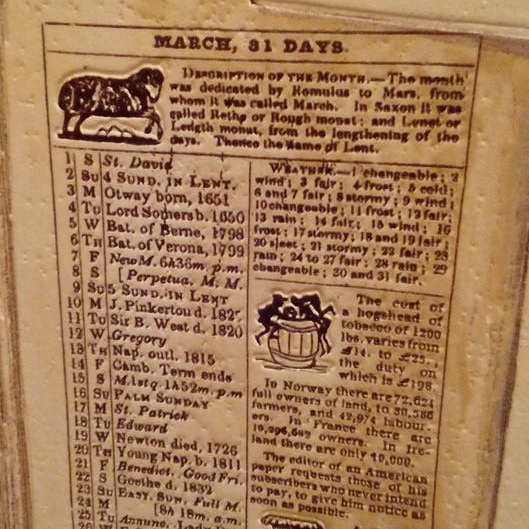 MARCH, 31 DAYS.
DESCRIPTION OF THE MONTH.—The month
was dedicated by Romulus to Mars, from
whom it was called March. In Saxon it was
called Rethe or Rough monat; and Lenet or
Length monat, from the lengthening of the
days. Thence the name of Lent.
1 S St. David
2 Su 4 SUND. IN LENT.
3 M Otway born, 1651
4 Tu Lord Somers b. 1650
5 W Bat. of Berne, 1798
6 Th Bat. of Verona, 1799
7 F New M. 6h36m. p.m.
8 S [Perpetua, M. M.
9 Su 5 SUND. IN LENT
10 M J. Pinkerton d.
11 Tu Sir B. West d. 1820
12 W Gregory
13 Th Nap. outl. 1815
14 F Camb. Term ends
15 S M. 1st q. 1h52m. p.m
16 Su PALM SUNDAY
17 M St. Patrick
18 Tu Edward
19 W Newton died, 1726
20 Th Young Nap. b. 1811
21 F Benedict. Good Fri.
22 S Goethe d. 1832
23 Su EAST. SUN. Full M.
24 M [8h 18m. a.m.
25 Tu Annunc.
WEATHER.—1 changeable; 2
wind; 3 fair; 4 frost; 5 cold;
6 and 7 fair; 8 stormy; 9 wind;
10 changeable; 11 frost; 12 fair;
13 rain; 14 fair; 15 wind; 16
frost; 17 stormy; 18 and 19 fair;
20 sleet; 21 stormy; 22 fair; 23
rain; 24 to 27 fair; 28 rain; 29
changeable; 30 and 31 fair.
The cost of
a hogshead of
tobacco of 1200
lbs. varies from
£14. to £25.,
the duty on
which is £198.
In Norway there are 72,624
full owners of land, to 30,586
farmers, and 42,974 labour-
ers. In France there are
owners. In Ire-
land there are only 10,000.
The editor of an American
paper requests those of his
subscribers who never intend
to pay, to give him notice as
soon as possible.